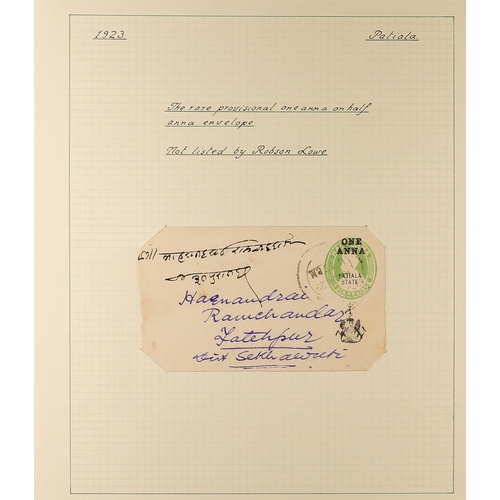 1923
Patiala
The rare provisional one anna on half
anna envelope
Not listed by Robson Lowe
ONE
ANNA
PATIALA
STATE
PM
Harnandrai
Ramchandar
Fatehpur
Dist Sekhawati